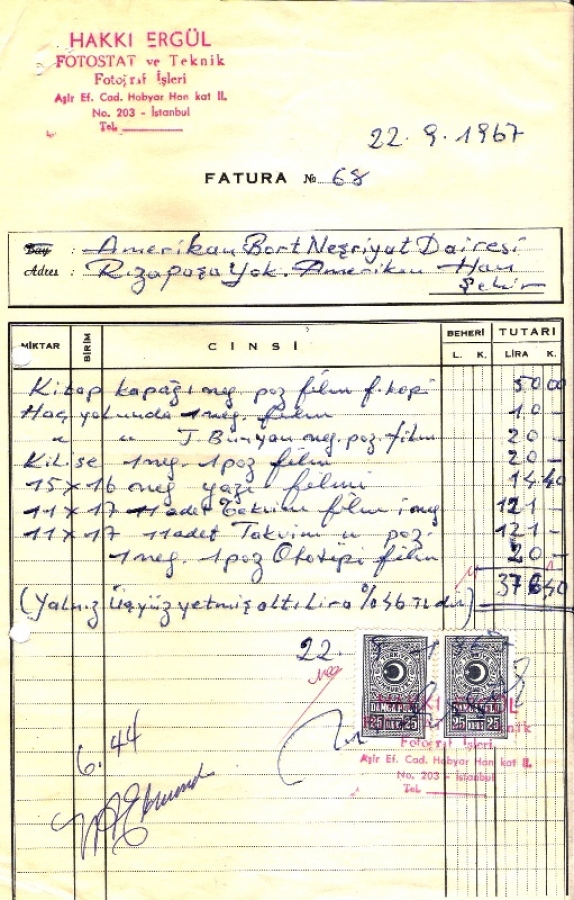 HAKKI ERGÜL
FOTOSTAT ve Teknik
Fotoğraf İşleri
Aşir Ef. Cad. Hobyar Han kat II.
No. 203 - İstanbul
Tel.
22.9.1967
FATURA № 68
Bay : Amerikan Bort Neşriyat Dairesi
Adres : Rızapaşa Yok. Amerikan Han
Şehir
MİKTAR BİRİM CİNSİ BEHERİ TUTARI
L. K. LİRA K.
Kitap kapağı neg poz film f.kopi 50 00
Haç yolunda 1 neg. film 10 -
" " J. Bunyan neg. poz. film 20 -
Kilise 1 neg. 1 poz film 20 -
15 x 16 neg yazı filmi 14 40
11 x 17 11 adet Takvim film neg 121 -
11 x 17 11 adet Takvim " poz 121 -
1 neg. 1 poz Ofotipi film 20 -
376 40
(Yalnız Üçyüzyetmişaltı Lira %46 TL dır)
22. 9
DAMGA PULU DAMGA PULU
25 25 25 25
Teknik
Fotoğraf İşleri
Aşir Ef. Cad. Hobyar Han kat II.
No. 203 - İstanbul
Tel.
6.44